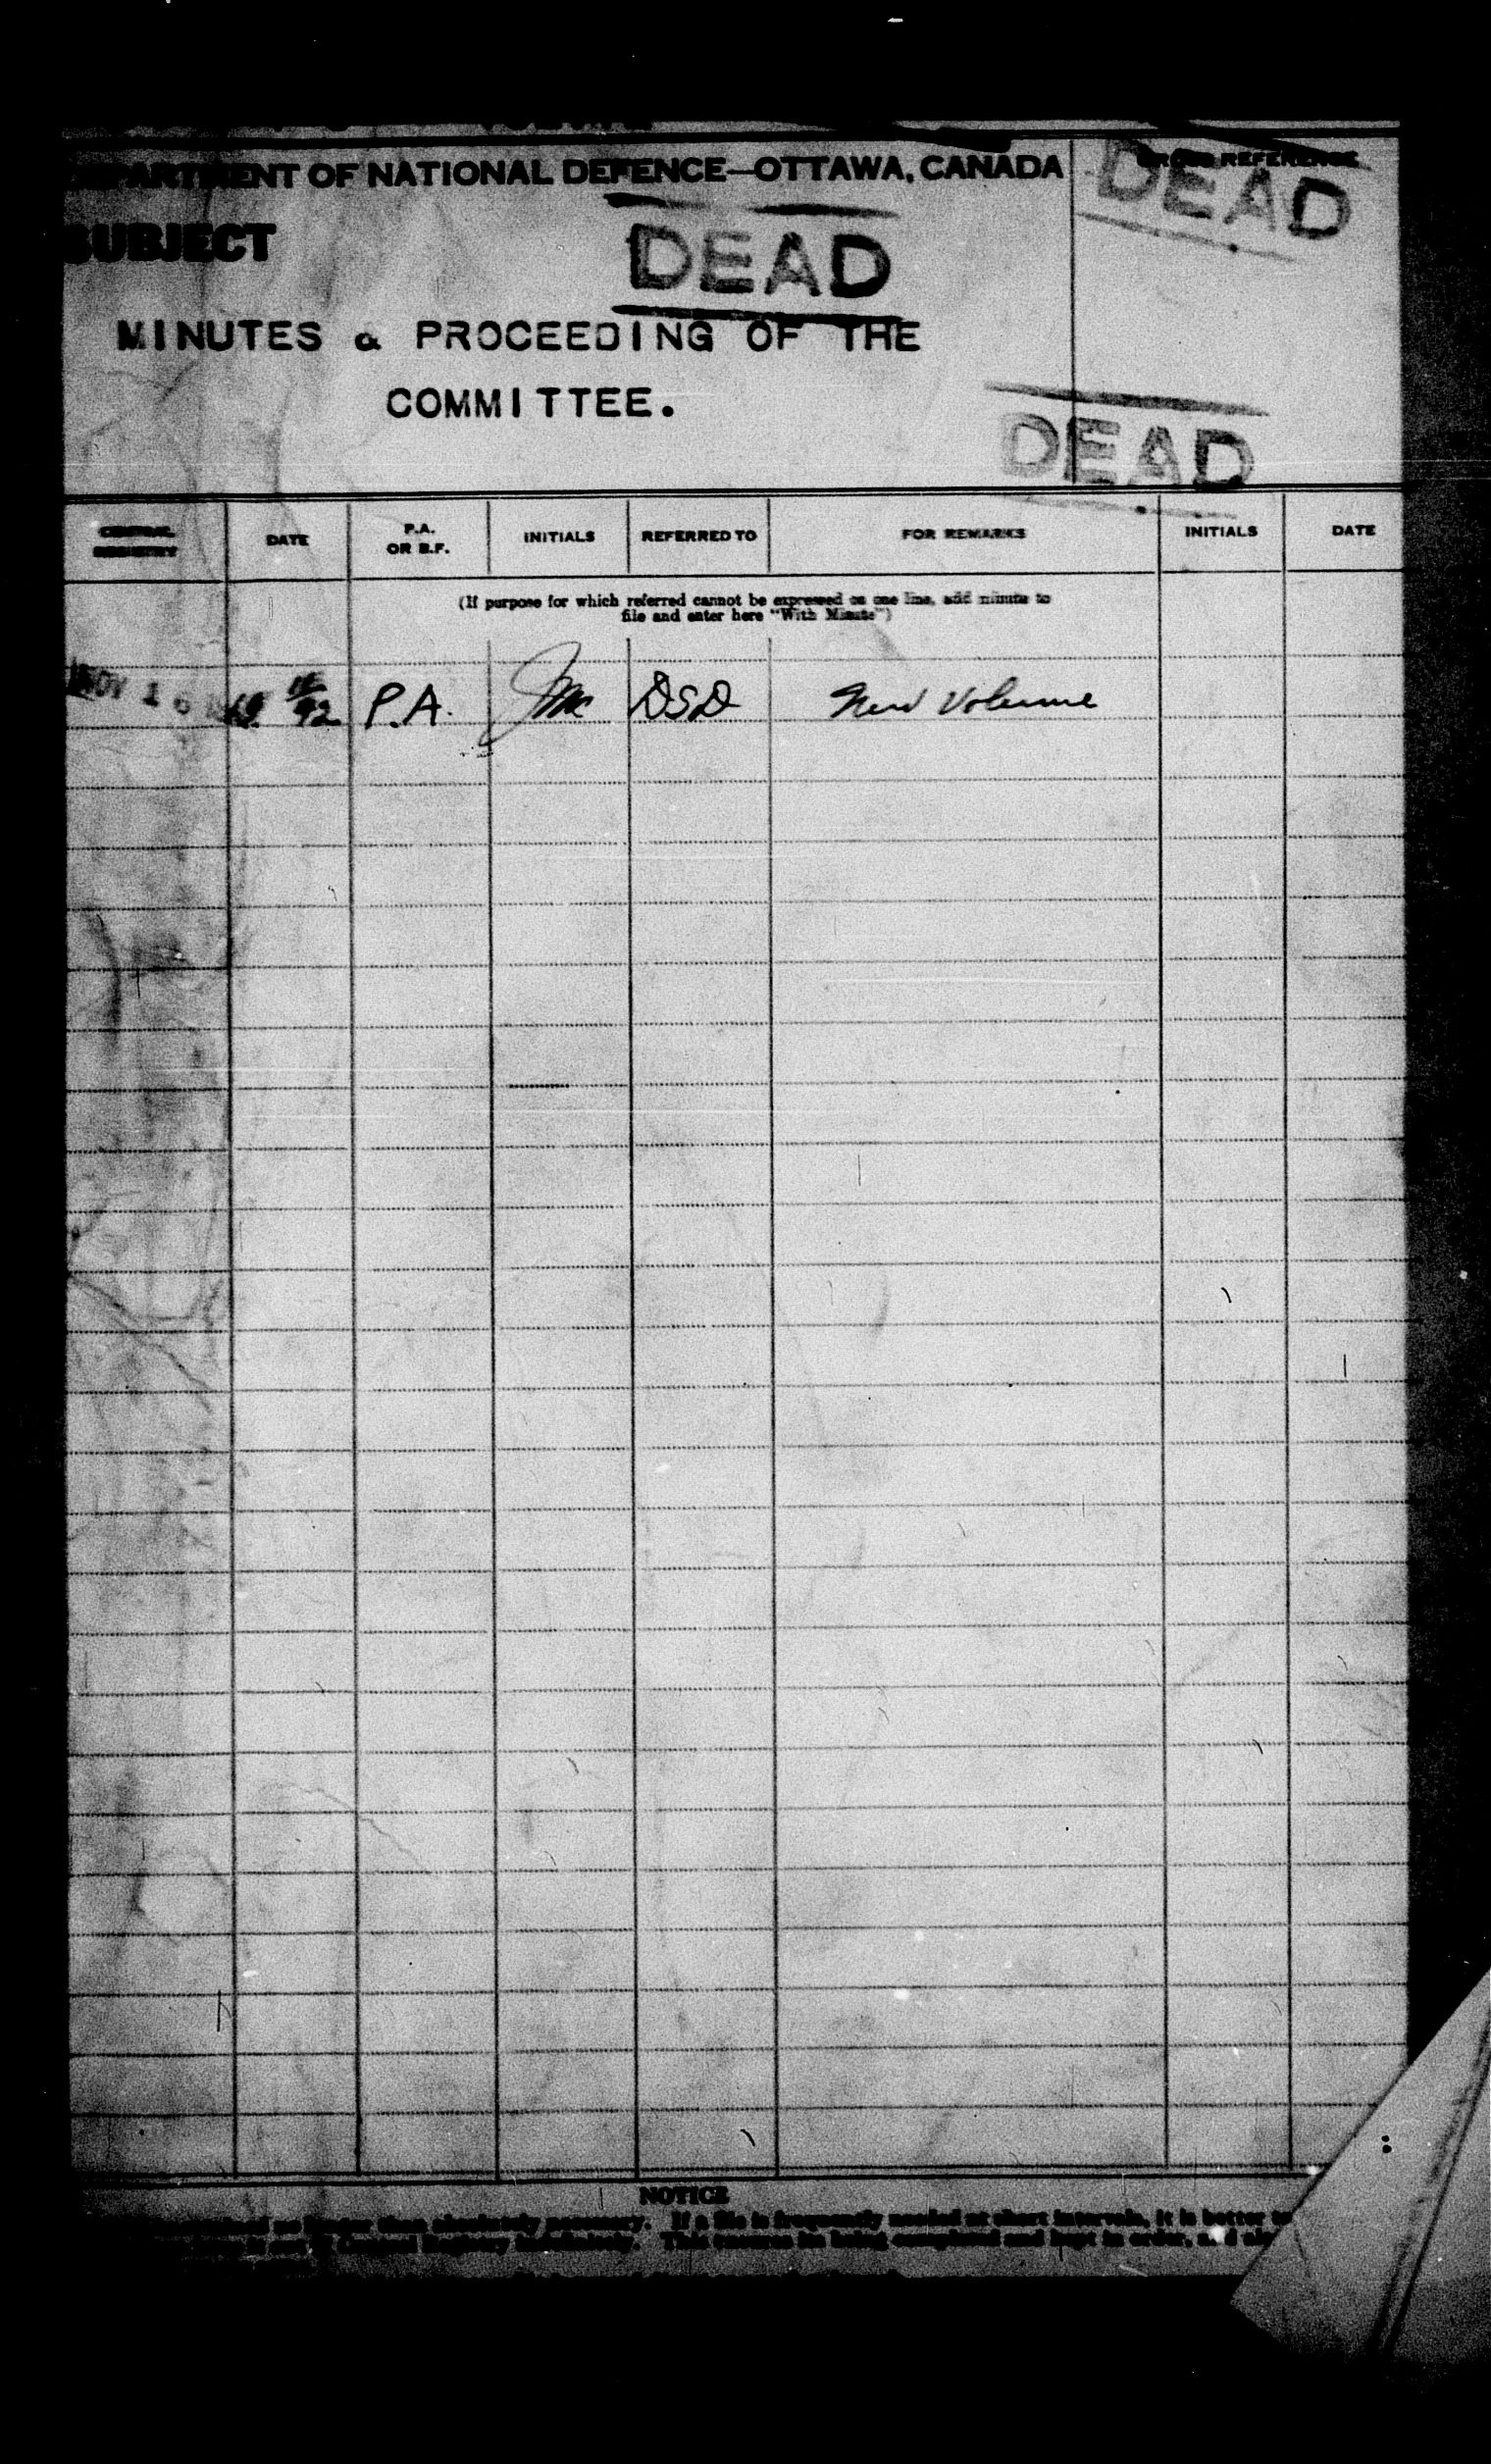 DEPARTMENT OF NATIONAL DEFENCE—OTTAWA, CANADA
CROSS REFERENCE
DEAD
SUBJECT
DEAD
MINUTES & PROCEEDING OF THE
COMMITTEE.
DEAD
CENTRAL REGISTRY DATE P.A. OR B.F. INITIALS REFERRED TO FOR REMARKS INITIALS DATE
(If purpose for which referred cannot be expressed on one line, add minute to
file and enter here "With Minute")
NOV 16 P.A. DSD New Volume
NOTICE
longer than absolutely necessary. If a file is frequently needed at short intervals, it is better to
Central Registry This ensures its being completed and kept in order,